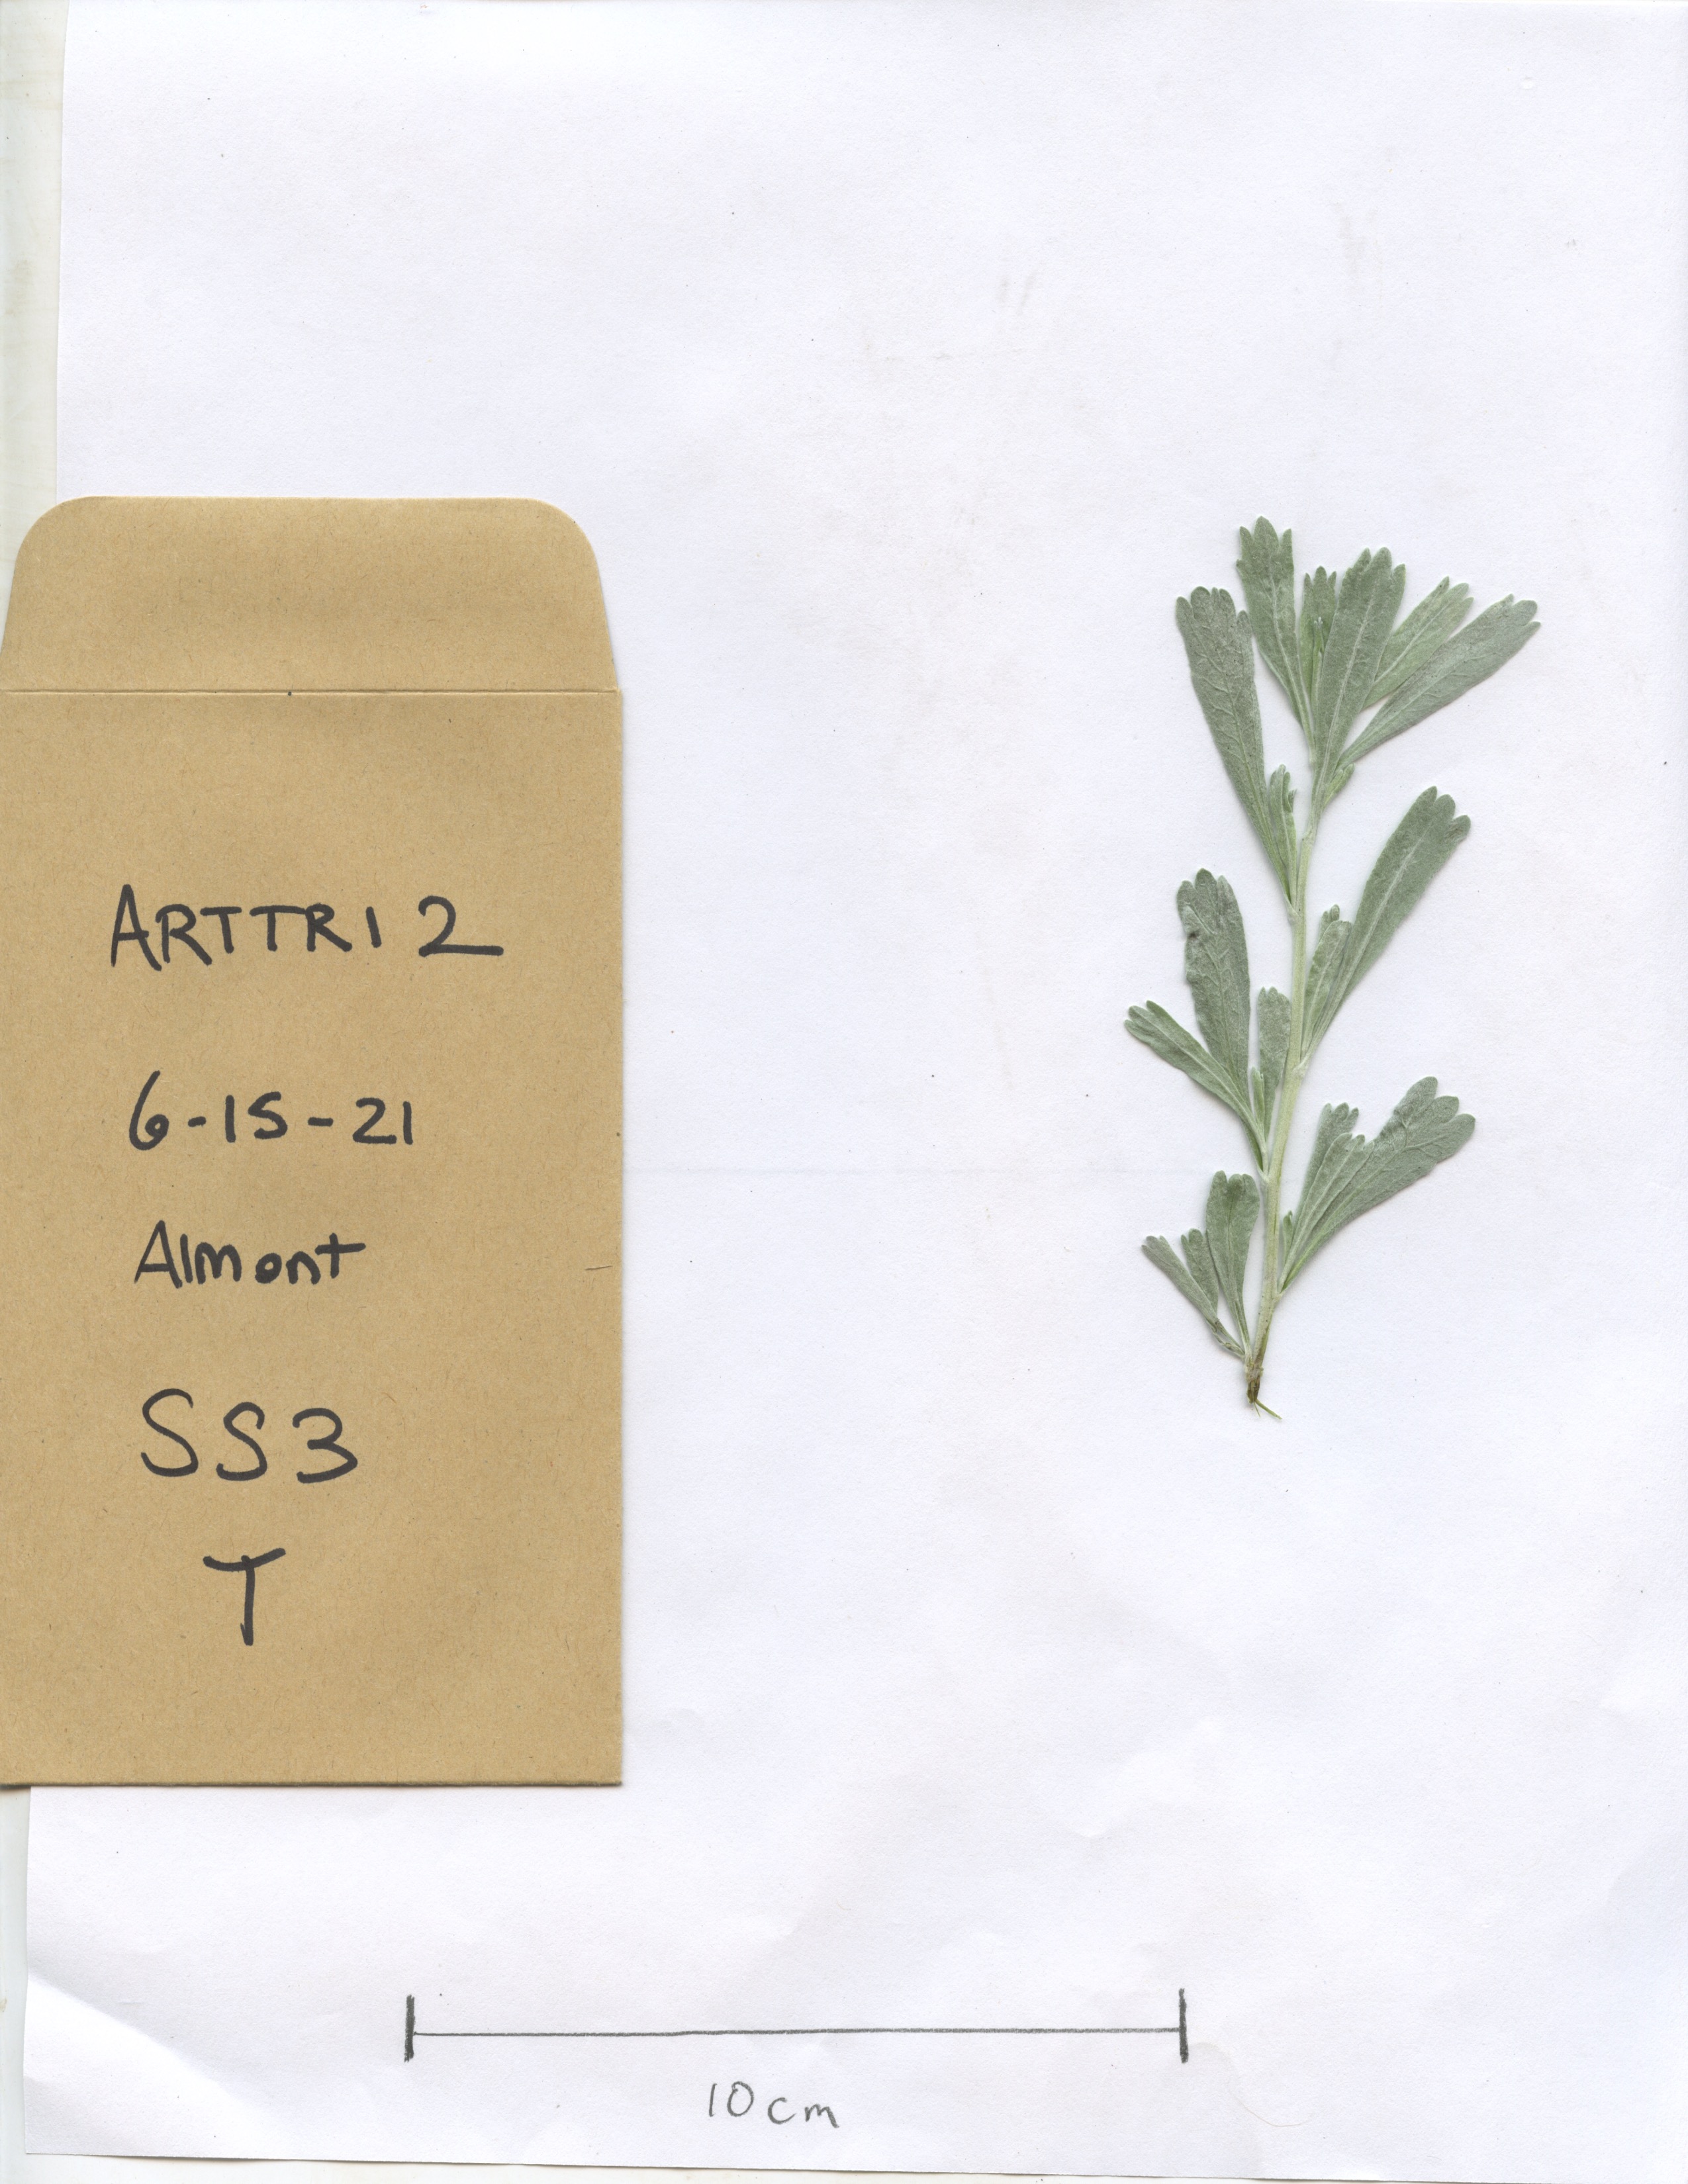 ARTTRI 2
6-15-21
Almont
SS3
T
10cm